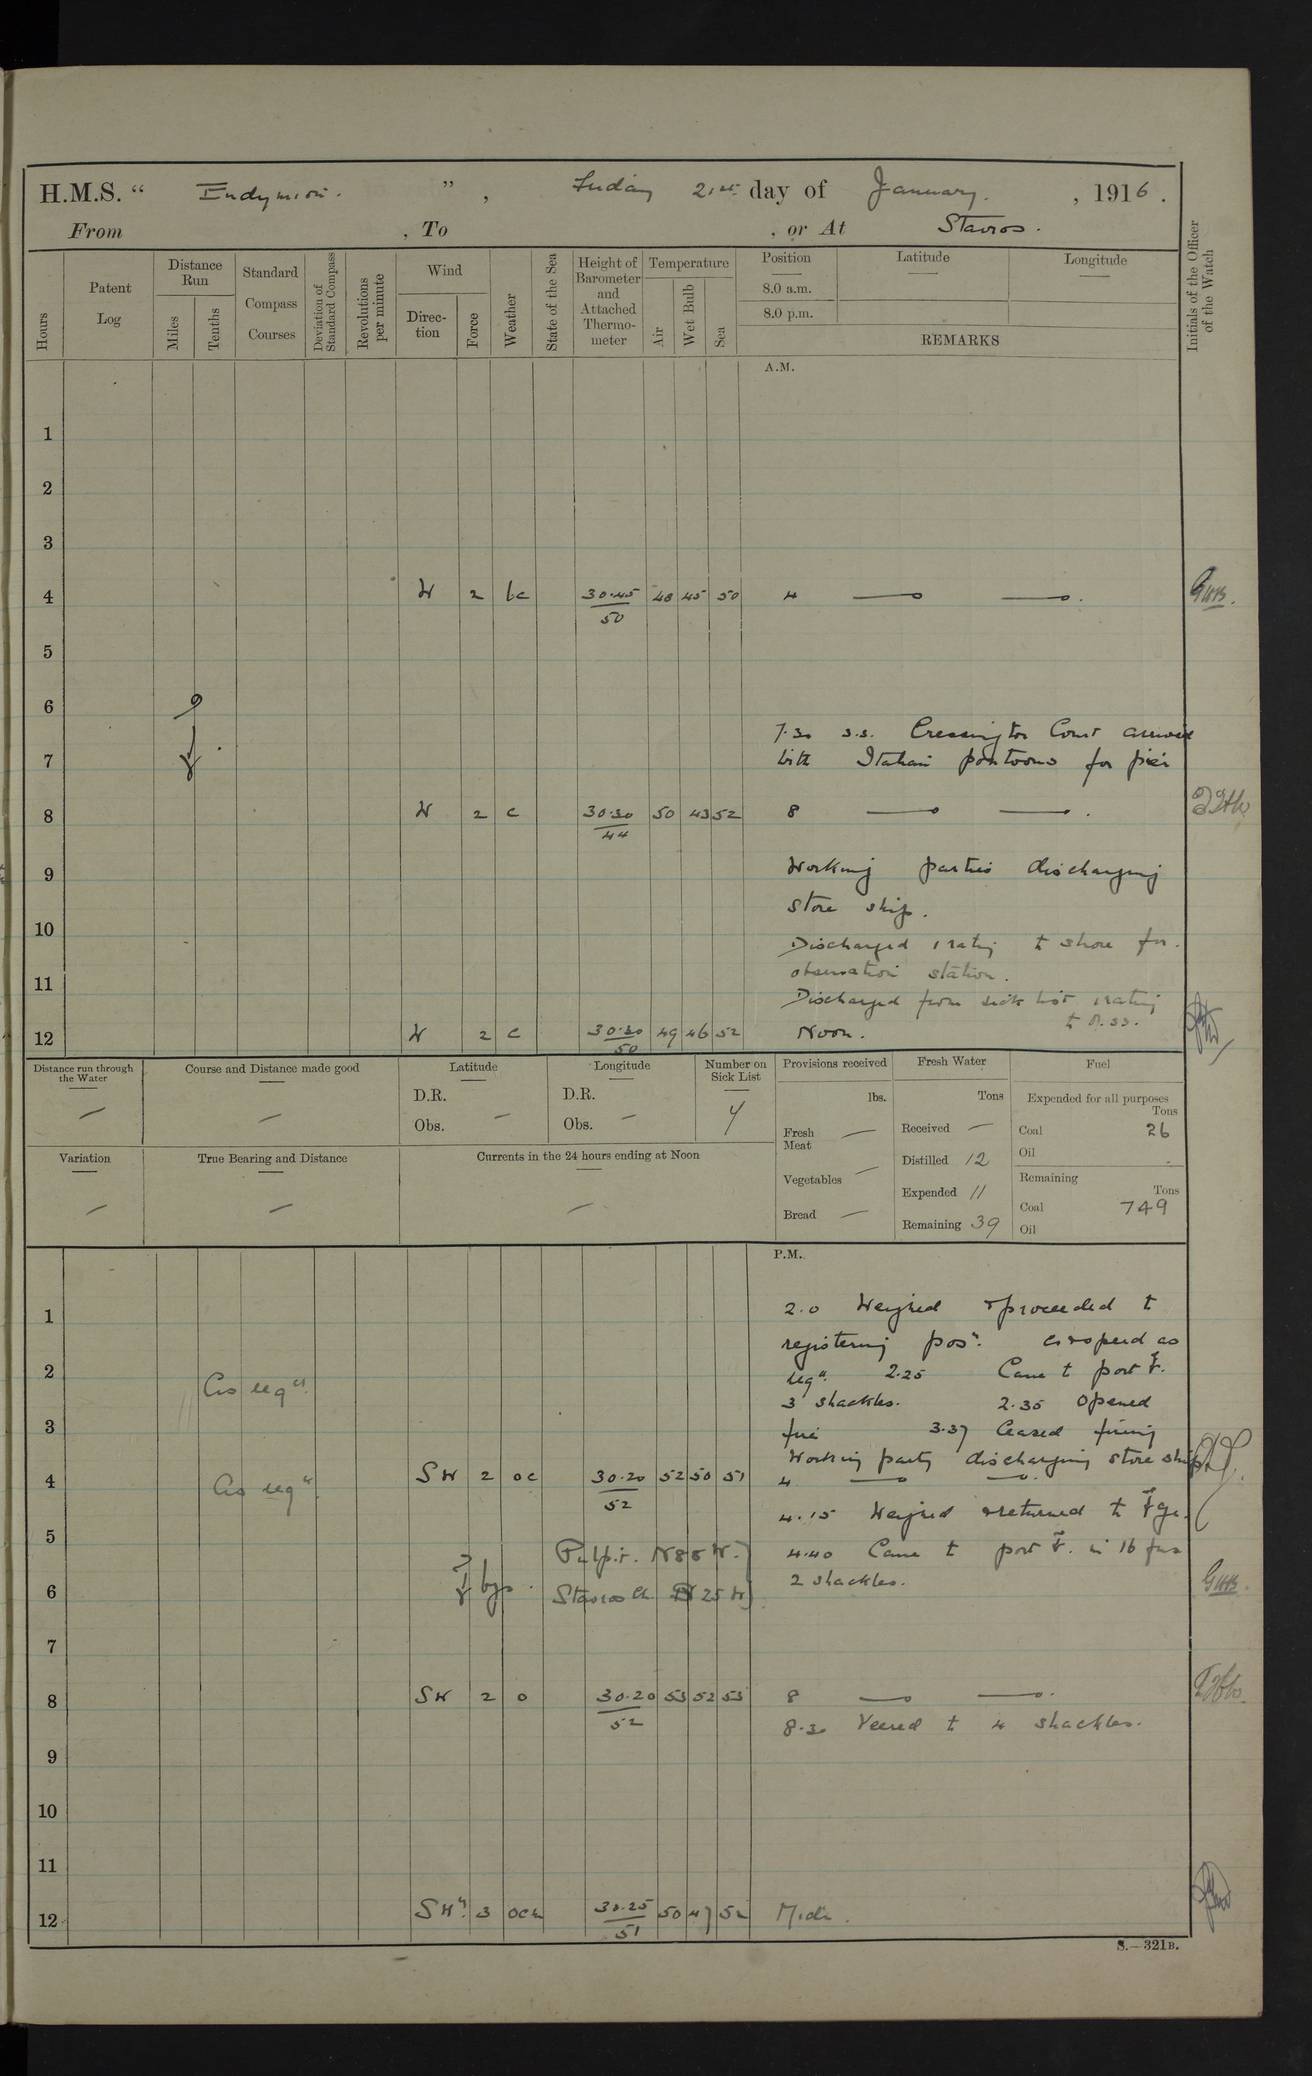 H.M.S. " Endymion. " , Friday 21st day of January. , 1916.
From , To , or At Stavros.
Hours
Patent Log
Distance Run
Miles
Tenths
Standard Compass Courses
Deviation of Standard Compass
Revolutions per minute
Wind
Direction
Force
Weather
State of the Sea
Height of Barometer and Attached Thermometer
Temperature
Air
Wet Bulb
Sea
Position
8.0 a.m.
8.0 p.m.
Latitude
Longitude
REMARKS
Initials of the Officer of the Watch
A.M.
1
2
3
4 W 2 bc 30.45 48 45 50 4
50
5
6
7.30 s.s. Cressington Court arrived
7 with Italian pontoons for pier
8 W 2 c 30.30 50 43 52 8
44
9 Working parties discharging
store ship.
10 Discharged 1 rating to shore for
observation station.
11 Discharged from sick list 1 rating
12 W 2 c 30.30 49 46 52 Noon.
50
Distance run through the Water —
Course and Distance made good —
Latitude
D.R.
Obs. —
Longitude
D.R.
Obs. —
Number on Sick List
4
Provisions received
lbs.
Fresh Meat —
Vegetables —
Bread —
Fresh Water
Tons
Received —
Distilled 12
Expended 11
Remaining 39
Fuel
Expended for all purposes
Tons
Coal 26
Oil
Remaining
Tons
Coal 749
Oil
Variation —
True Bearing and Distance —
Currents in the 24 hours ending at Noon —
P.M.
1 2.0 Weighed & proceeded to
registering posn. Co & speed as
2 As reqd. reqd. 2.25 Came to port
3 shackles. 2.35 Opened
3 fire 3.37 Ceased firing
Working party discharging store ship
4 As reqd. SW 2 oc 30.20 52 50 51 4
52
4.15 Weighed & returned to
5 Pulpit. N 85 W. 4.40 Came to port in 16 fms
6 bgs. Stavros Ch. N 25 W 2 shackles.
7
8 SW 2 o 30.20 53 52 53 8
52
8.30 Veered to 4 shackles.
9
10
11
12 3 30.25 50 47 52 Midt.
51
S.—321B.